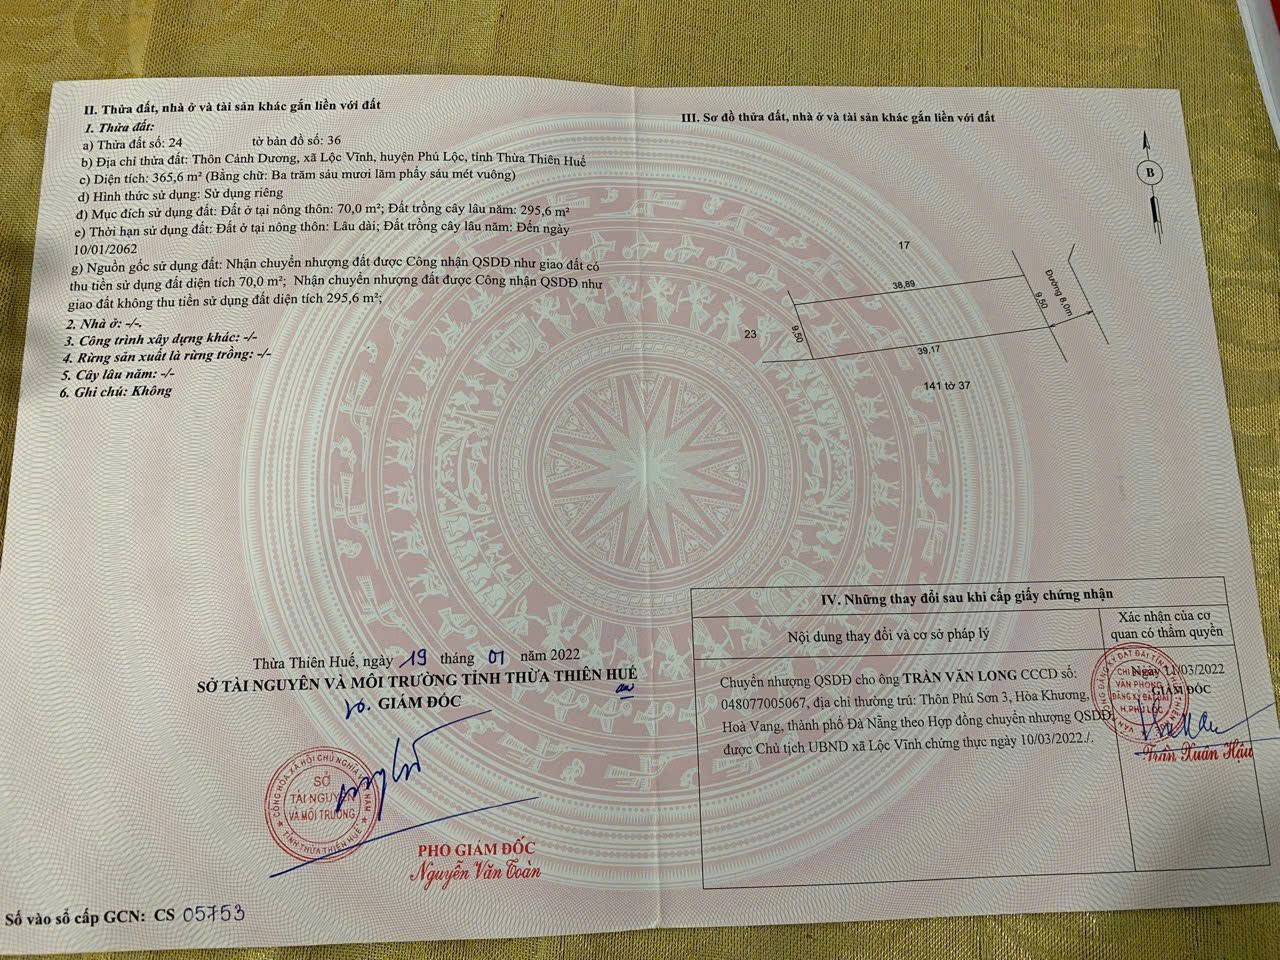 II. Thửa đất, nhà ở và tài sản khác gắn liền với đất
1. Thửa đất:
a) Thửa đất số: 24 tờ bản đồ số: 36
b) Địa chỉ thửa đất: Thôn Cảnh Dương, xã Lộc Vĩnh, huyện Phú Lộc, tỉnh Thừa Thiên Huế
c) Diện tích: 365,6 m² (Bằng chữ: Ba trăm sáu mươi lăm phẩy sáu mét vuông)
d) Hình thức sử dụng: Sử dụng riêng
đ) Mục đích sử dụng đất: Đất ở tại nông thôn: 70,0 m²; Đất trồng cây lâu năm: 295,6 m²
e) Thời hạn sử dụng đất: Đất ở tại nông thôn: Lâu dài; Đất trồng cây lâu năm: Đến ngày
10/01/2062
g) Nguồn gốc sử dụng đất: Nhận chuyển nhượng đất được Công nhận QSDĐ như giao đất có
thu tiền sử dụng đất diện tích 70,0 m²; Nhận chuyển nhượng đất được Công nhận QSDĐ như
giao đất không thu tiền sử dụng đất diện tích 295,6 m²;
2. Nhà ở: -/-.
3. Công trình xây dựng khác: -/-
4. Rừng sản xuất là rừng trồng: -/-
5. Cây lâu năm: -/-
6. Ghi chú: Không
Thừa Thiên Huế, ngày 19 tháng 01 năm 2022
SỞ TÀI NGUYÊN VÀ MÔI TRƯỜNG TỈNH THỪA THIÊN HUẾ
GIÁM ĐỐC
CỘNG HÒA XÃ HỘI CHỦ NGHĨA VIỆT NAM
SỞ
TÀI NGUYÊN
VÀ MÔI TRƯỜNG
TỈNH THỪA THIÊN HUẾ
PHÓ GIÁM ĐỐC
Nguyễn Văn Toàn
Số vào sổ cấp GCN: CS 05753
III. Sơ đồ thửa đất, nhà ở và tài sản khác gắn liền với đất
B
17
38,89
Đường 8,0m
9,50
23
9,50
39,17
141 tờ 37
IV. Những thay đổi sau khi cấp giấy chứng nhận
Nội dung thay đổi và cơ sở pháp lý
Xác nhận của cơ
quan có thẩm quyền
Chuyển nhượng QSDĐ cho ông TRẦN VĂN LONG CCCD số:
048077005067, địa chỉ thường trú: Thôn Phú Sơn 3, Hòa Khương,
Hoà Vang, thành phố Đà Nẵng theo Hợp đồng chuyển nhượng QSDĐ
được Chủ tịch UBND xã Lộc Vĩnh chứng thực ngày 10/03/2022./.
Ngày 11/03/2022
GIÁM ĐỐC
CHI NHÁNH
VĂN PHÒNG
ĐĂNG KÝ ĐẤT ĐAI
H. PHÚ LỘC
Trần Xuân Hậu